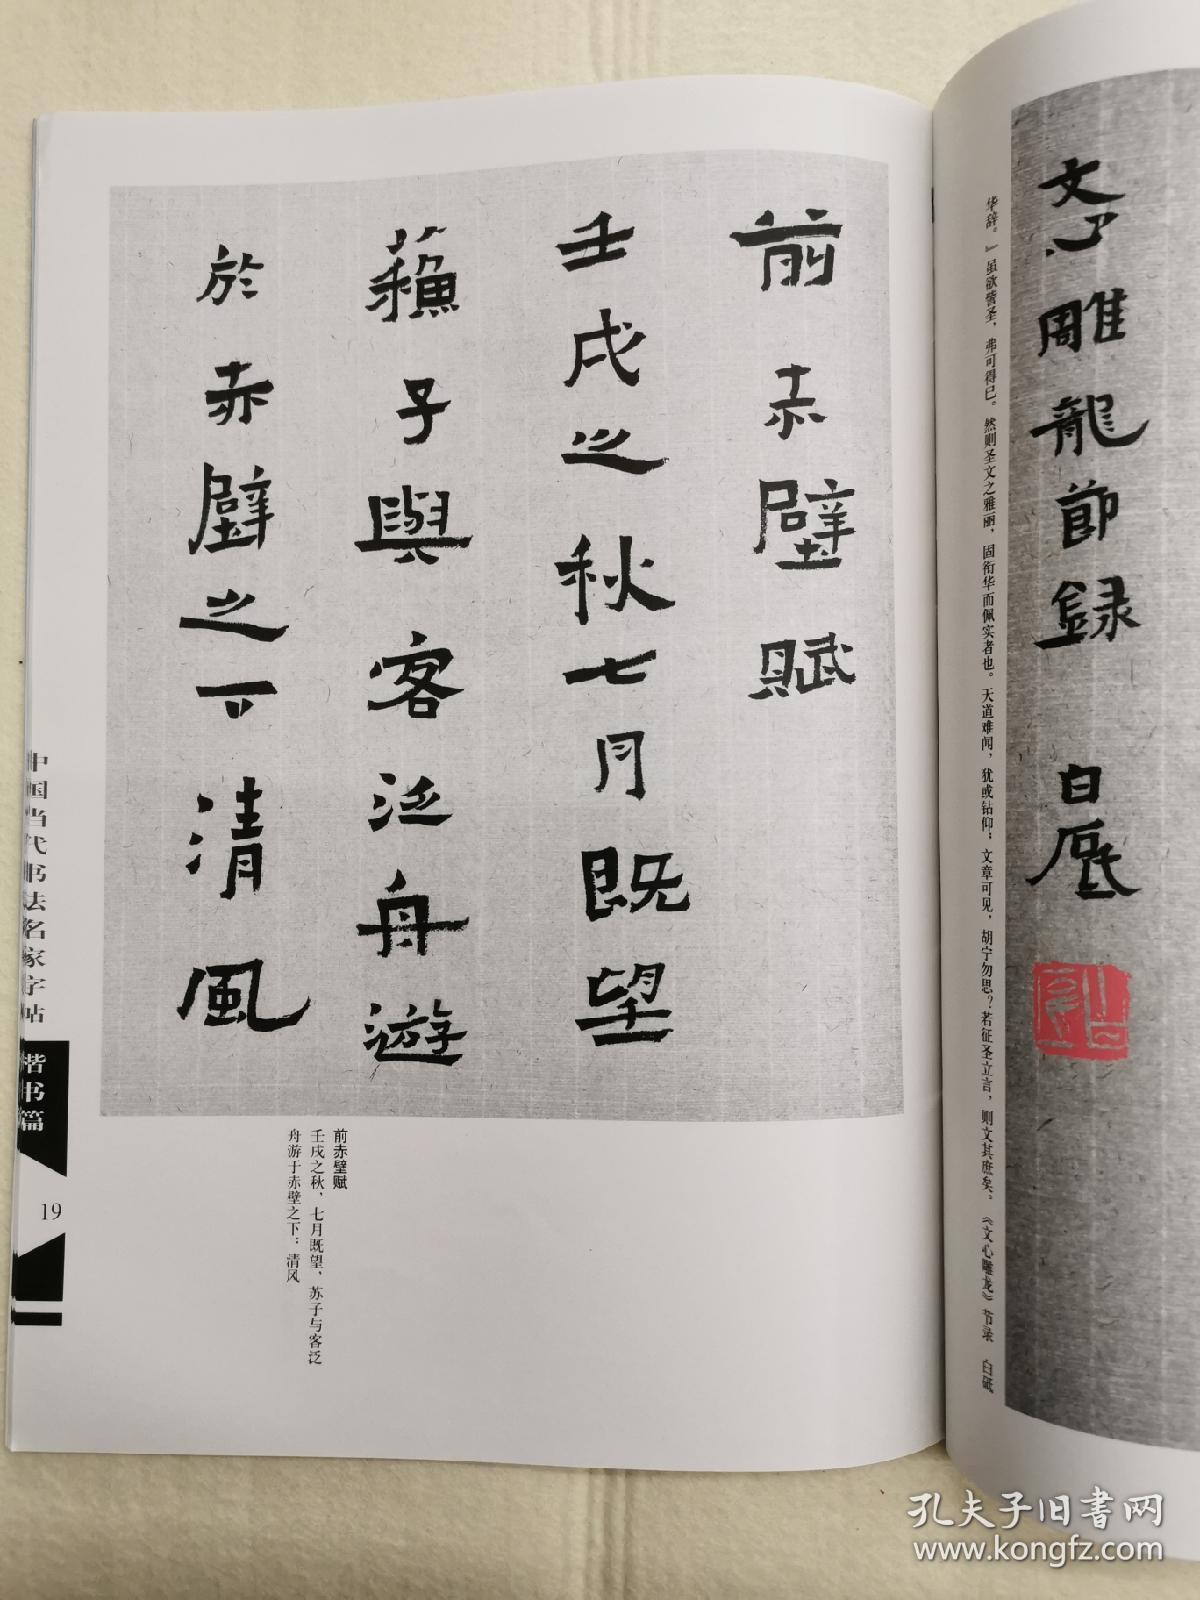 文心雕龍節録 白砥
华辞。』虽欲訾圣，弗可得已。然则圣文之雅丽，固衔华而佩实者也。天道难闻，犹或钻仰；文章可见，胡宁勿思？若征圣立言，则文其庶矣。《文心雕龙》节录 白砥
前赤壁賦
壬戌之秋七月既望
蘓子與客泛舟遊
於赤壁之下清風
前赤壁赋
壬戌之秋，七月既望，苏子与客泛
舟游于赤壁之下；清风
中国当代书法名家字帖
楷书篇
19
孔夫子旧书网
www.kongfz.com